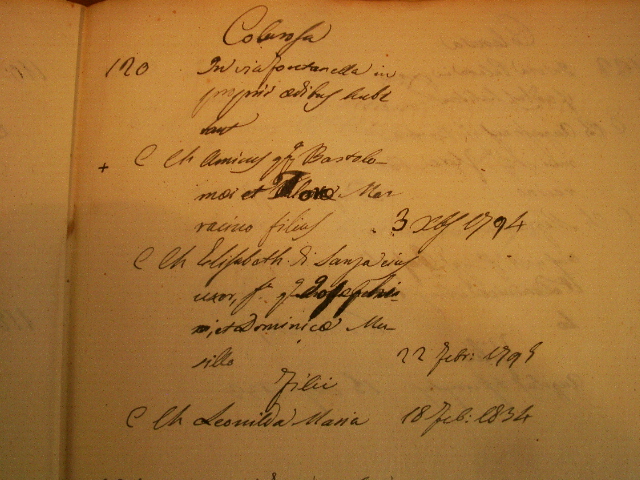 Colarossa
120 In via fontanella in
propriis ædibus habi
tant
+ C Ch Amicus qm Bartolo-
mæi et Tore Mar
racino filius 3 Xbs 1794
C Ch Elisabeth Di Sanza ejus
uxor, fa qm Josephi
et Dominicæ Ma-
sillo 22 Febr: 1795
Filii
C Ch Leonilda Maria 18 Feb: 1834